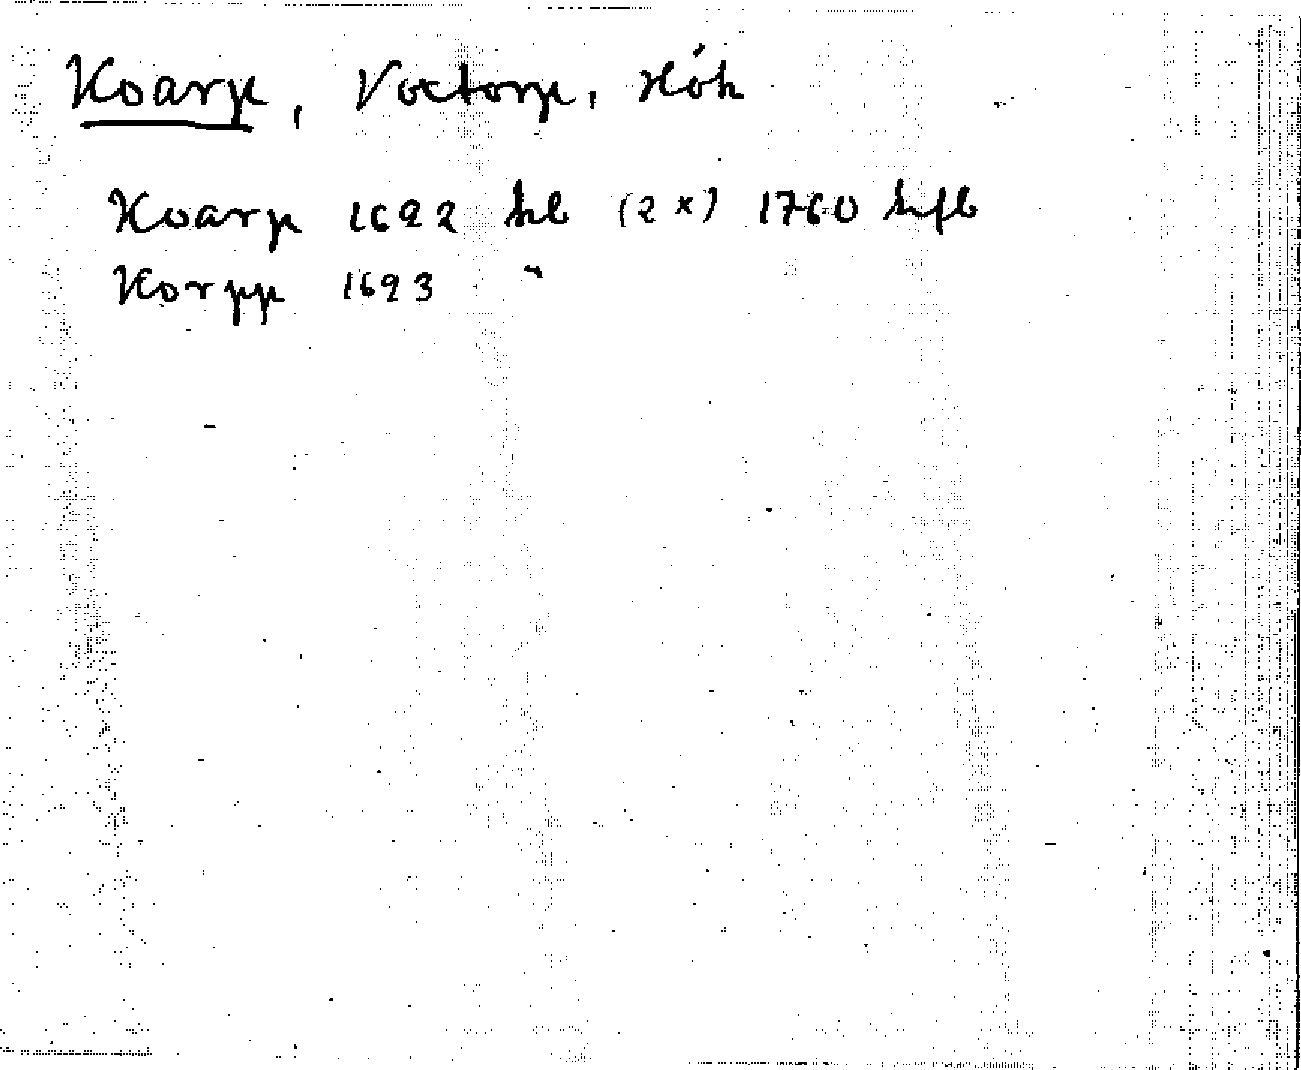 Koarp, Voxtorp, Hök
Koarp 1692 kb (2x) 1760 hfb
Korpp 1693 "